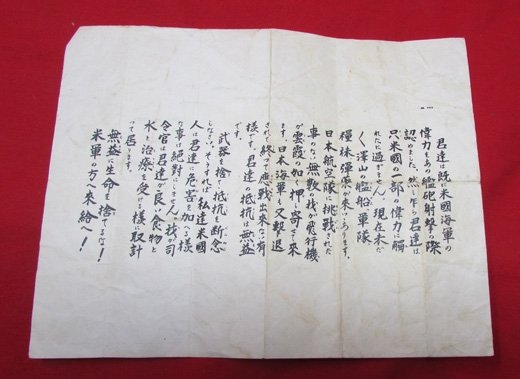 君達は既に米國海軍の
偉力をあの艦砲射撃の際
認めました。然し乍ら君達は、
只米國の一部の偉力に觸
れたに過ぎません。現在未だ
〱澤山の艦船、軍隊
糧秣、彈藥が來つゝあります。
日本航空隊に挑戰された
事のない無數の我が飛行機
が雲霞の如く押し寄せて來
ます。日本海軍も又撃退
されて終つて應戰出來ない有
樣です。君達の抵抗は無益
です。
武器を捨て抵抗を断念
しなさい。そうすれば私達米國
人は君達に危害を加へる樣
な事は絶對にしません。我が司
令官は君達が良い食物と
水と治療を受ける樣に取計
つて居ます。
無益に生命を捨てるな！
米軍の方へ來給へ！